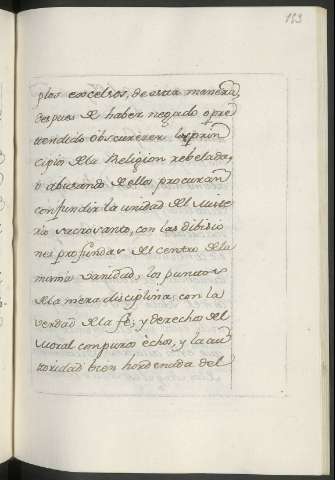 153
plos excelsos, de esta manera,
despues de haber negado o pre
tendido obscurezer los prin
cipios de la Religion rebelada,
o abusando de ellos procuran
confundir la unidad del Miste
rio sacrosanto, con las dibisio
nes profundas del centro de la
misma vanidad; los puntos
de la mera disciplina, con la
verdad de la fé; y derechos del
Moral con puros echos, y la au
toridad bien hordenada del